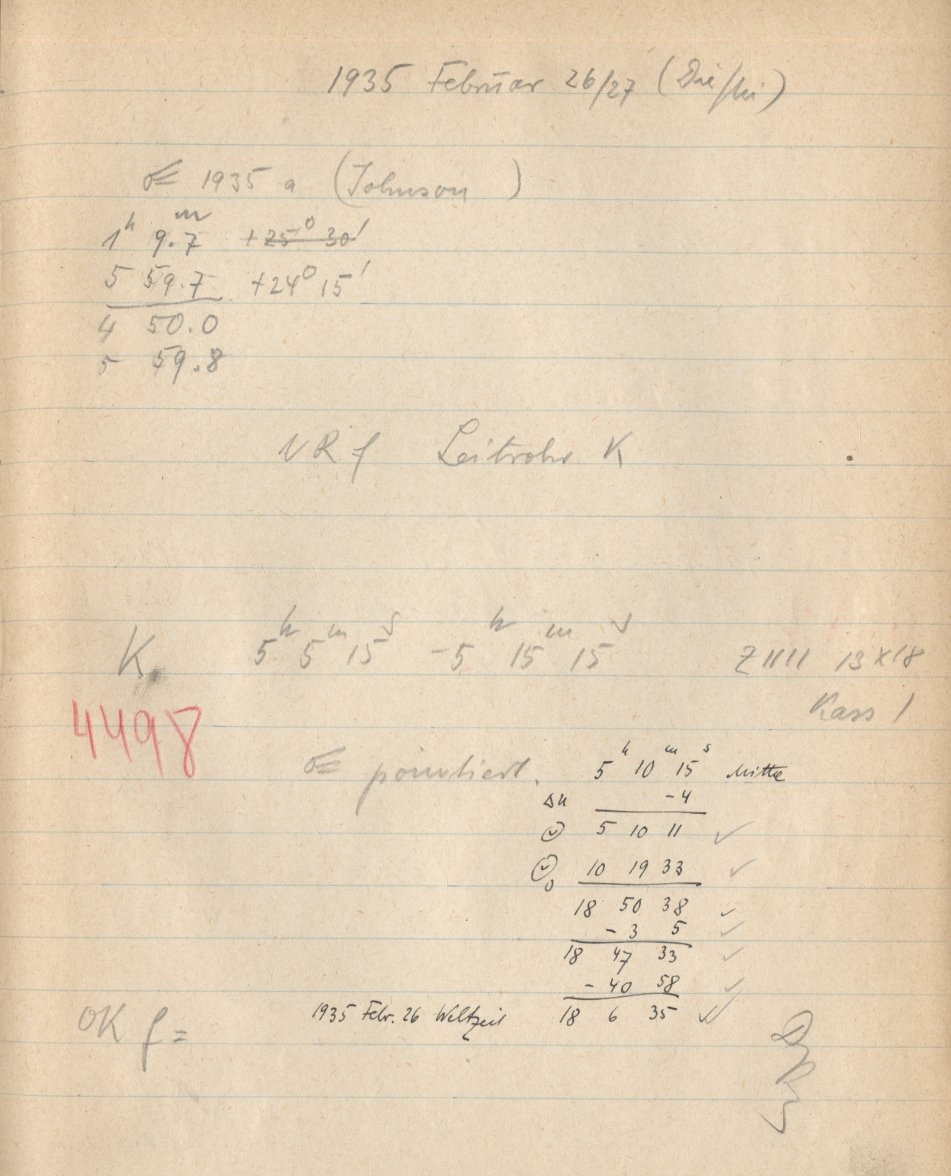 1935 Februar 26/27 (Die/Mi)
☄ 1935 a (Johnson )
1ʰ 9.7ᵐ +25° 30'
5 59.7 +24° 15'
4 50.0
5 59.8
VRf Leitrohr K
K. 5ʰ 5ᵐ 15ˢ - 5ʰ 15ᵐ 15ˢ Z 1111 13×18
Kass 1
4498
☄ pointiert. 5ʰ 10ᵐ 15ˢ Mitte
Δu -4
5 10 11 ✓
10 19 33 ✓
18 50 38 ✓
- 3 5 ✓
18 47 33 ✓
- 40 58 ✓
OK f = 1935 Febr. 26 Weltzeit 18 6 35 ✓